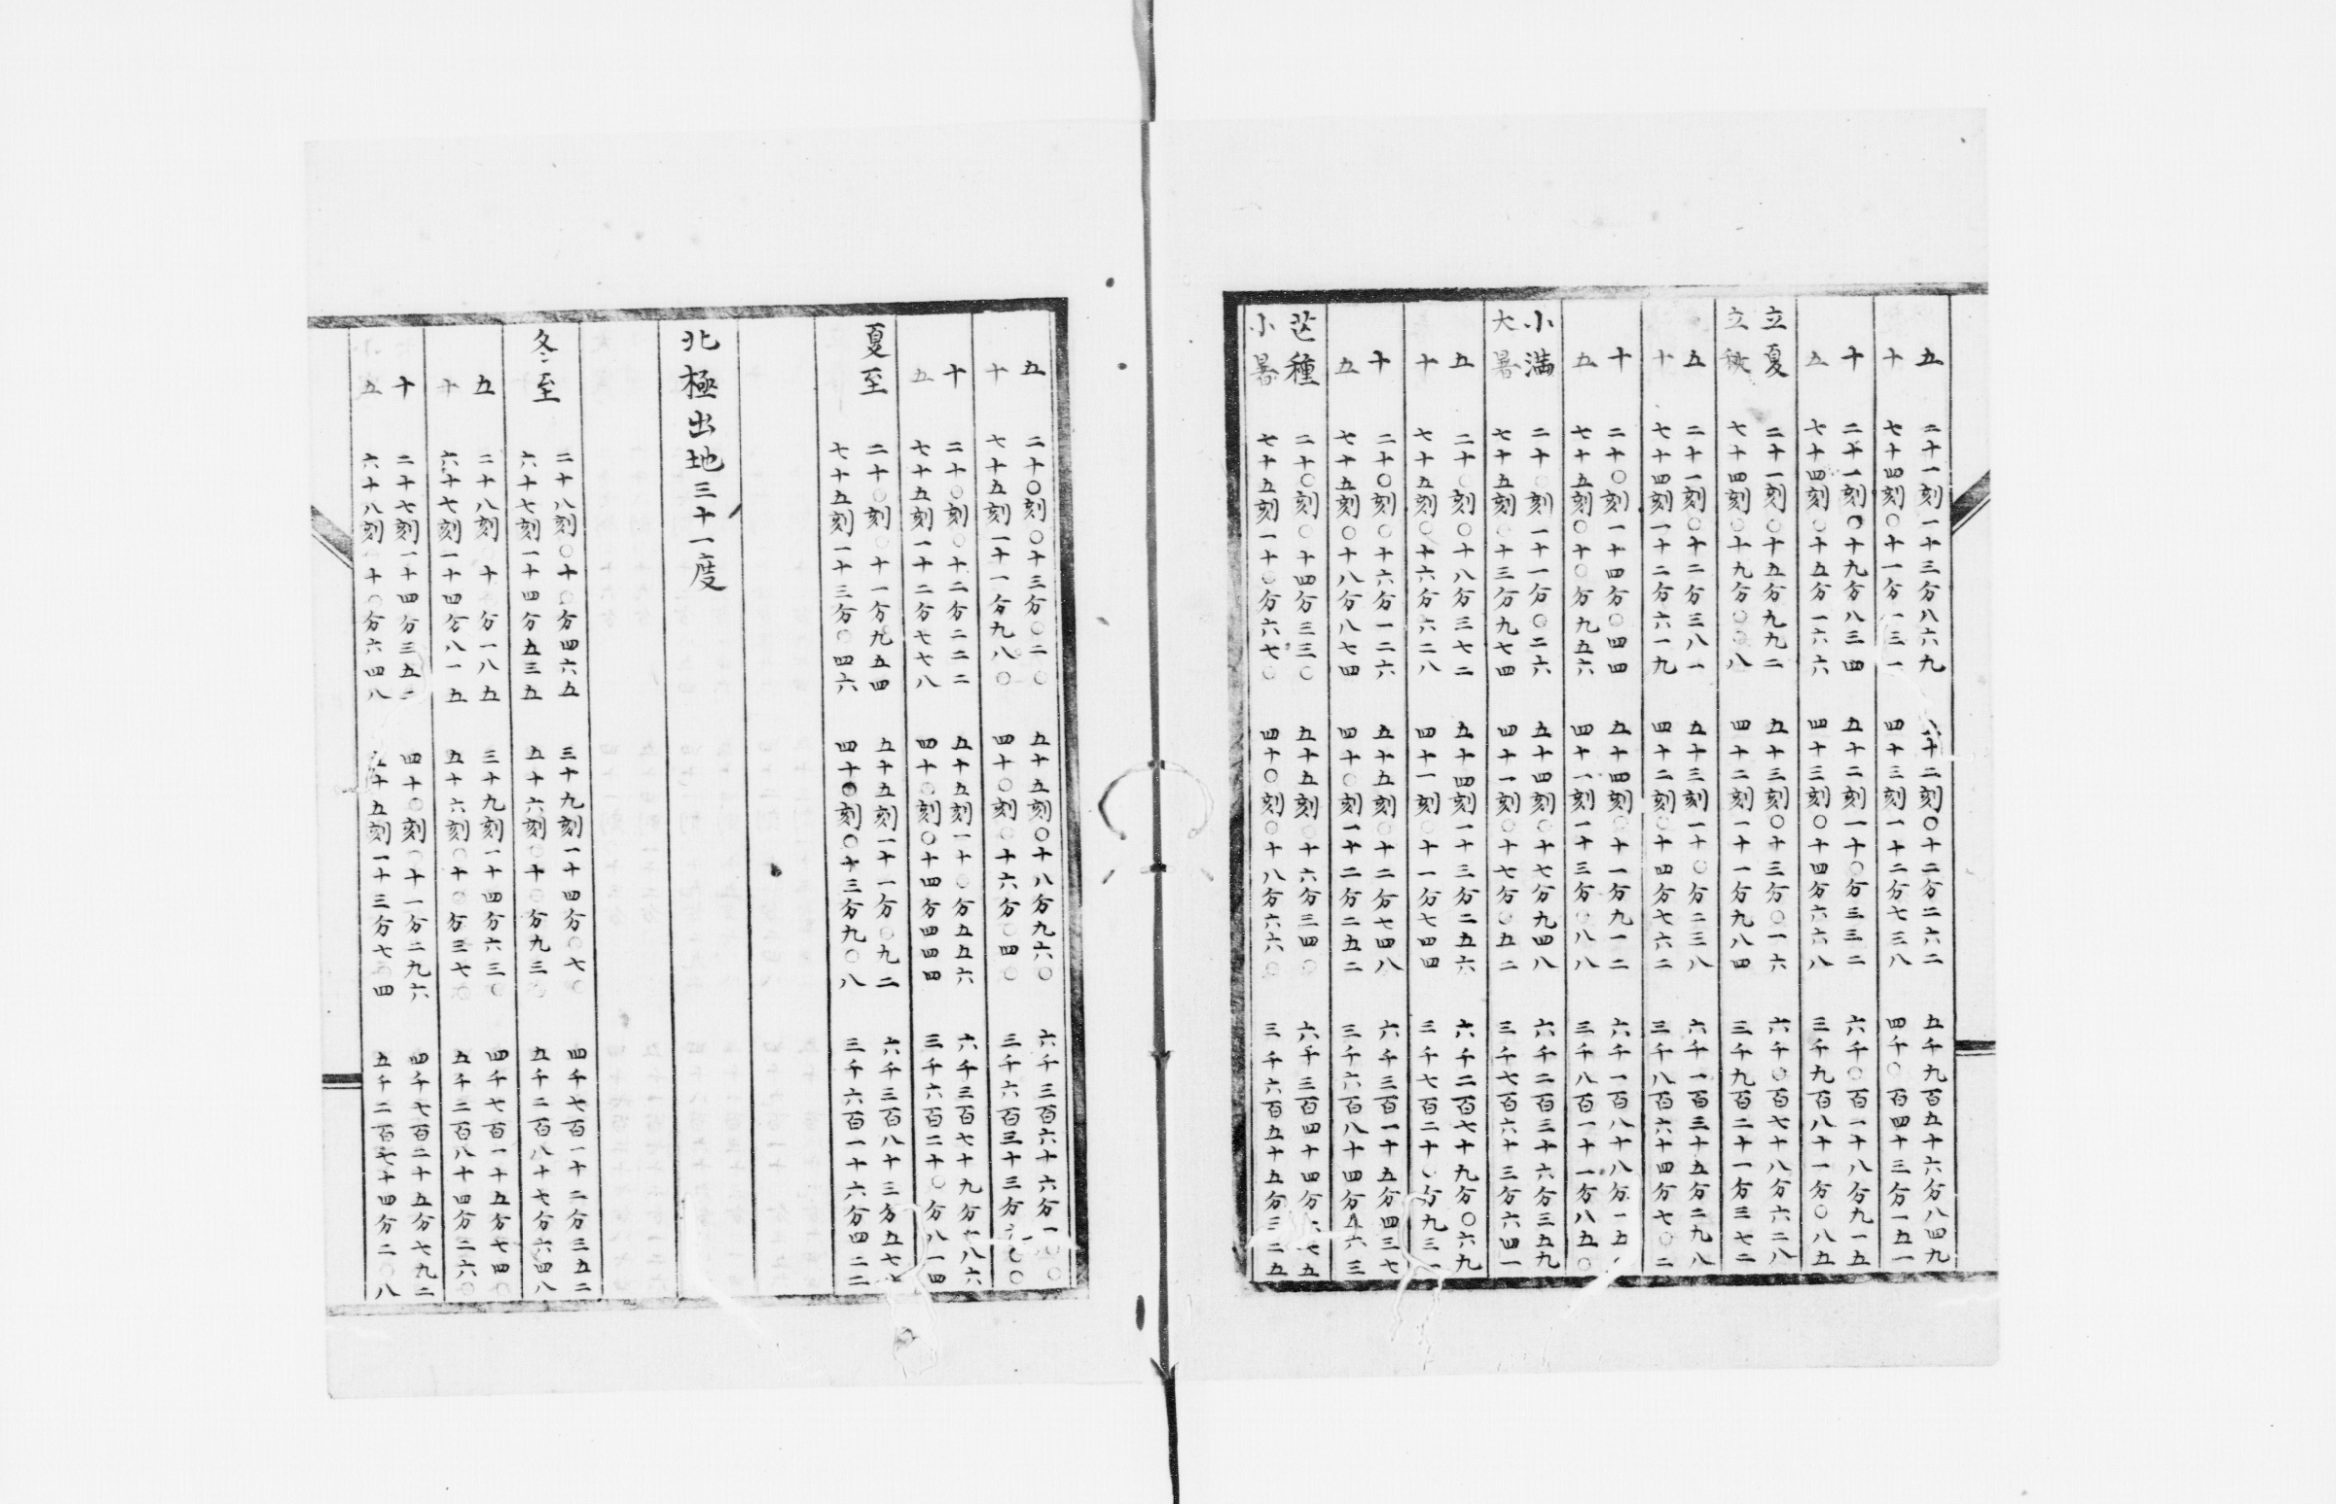 五 二十一刻一十三分八六九 十二刻〇十二分二六二 五千九百五十六分八四九
十 七十四刻〇十一分一三一 四十三刻一十二分七三八 四千〇百四十三分一五一
十 二十一刻〇十九分八三四 五十二刻一十〇分三三二 六千〇百一十八分九一五
五 七十四刻〇十五分一六六 四十三刻〇十四分六六八 三千九百八十一分〇八五
立夏 二十一刻〇十五分九九二 五十三刻〇十三分〇一六 六千〇百七十八分六二八
立秋 七十四刻〇十九分〇〇八 四十二刻一十一分九八四 三千九百二十一分三七二
五 二十一刻〇十二分三八一 五十三刻一十〇分二三八 六千一百三十五分二九八
十 七十四刻一十二分六一九 四十二刻〇十四分七六二 三千八百六十四分七〇二
十 二十〇刻一十四分〇四四 五十四刻〇十一分九一二 六千一百八十八分一五
五 七十五刻〇十〇分九五六 四十一刻一十三分〇八八 三千八百一十一分八五〇
小滿 二十〇刻一十一分〇二六 五十四刻〇十七分九四八 六千二百三十六分三五九
大暑 七十五刻〇十三分九七四 四十一刻〇十七分〇五二 三千七百六十三分六四一
五 二十〇刻〇十八分三七二 五十四刻一十三分二五六 六千二百七十九分〇六九
十 七十五刻〇十六分六二八 四十一刻〇十一分七四四 三千七百二十〇分九三一
十 二十〇刻〇十六分一二六 五十五刻〇十二分七四八 六千三百一十五分四三七
五 七十五刻〇十八分八七四 四十〇刻一十二分二五二 三千六百八十四分五六三
芒種 二十〇刻〇十四分三三〇 五十五刻〇十六分三四〇 六千三百四十四分六七五
小暑 七十五刻一十〇分六七〇 四十〇刻〇十八分六六〇 三千六百五十五分三二五
五 二十〇刻〇十三分〇二〇 五十五刻〇十八分九六〇 六千三百六十六分一〇〇
十 七十五刻一十一分九八〇 四十〇刻〇十六分〇四〇 三千六百三十三分九〇〇
十 二十〇刻〇十二分二二二 五十五刻一十〇分五五六 六千三百七十九分一八六
五 七十五刻一十二分七七八 四十〇刻〇十四分四四四 三千六百二十〇分八一四
夏至 二十〇刻〇十一分九五四 五十五刻一十一分〇九二 六千三百八十三分五七
七十五刻一十三分〇四六 四十〇刻〇十三分九〇八 三千六百一十六分四二二
北極出地三十一度
冬至 二十八刻〇十〇分四六五 三十九刻一十四分〇七〇 四千七百一十二分三五二
六十七刻一十四分五三五 五十六刻〇十〇分九三〇 五千二百八十七分六四八
五 二十八刻〇十〇分一八五 三十九刻一十四分六三〇 四千七百一十五分七四〇
十 六十七刻一十四分八一五 五十六刻〇十〇分三七〇 五千二百八十四分二六〇
十 二十七刻一十四分三五二 四十〇刻〇十一分二九六 四千七百二十五分七九二
五 六十八刻〇十〇分六四八 五十五刻一十三分七〇四 五千二百七十四分二〇八